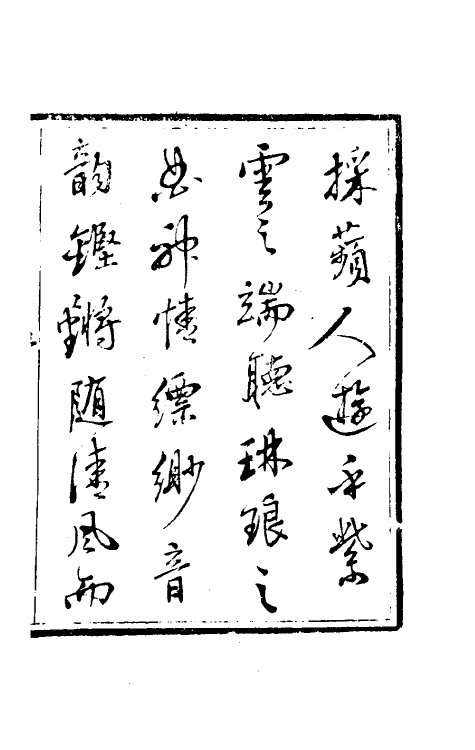 採蘋人遊乎紫
雲之端聽琳琅之
曲神情縹緲音
韵鏗鏘随清風而